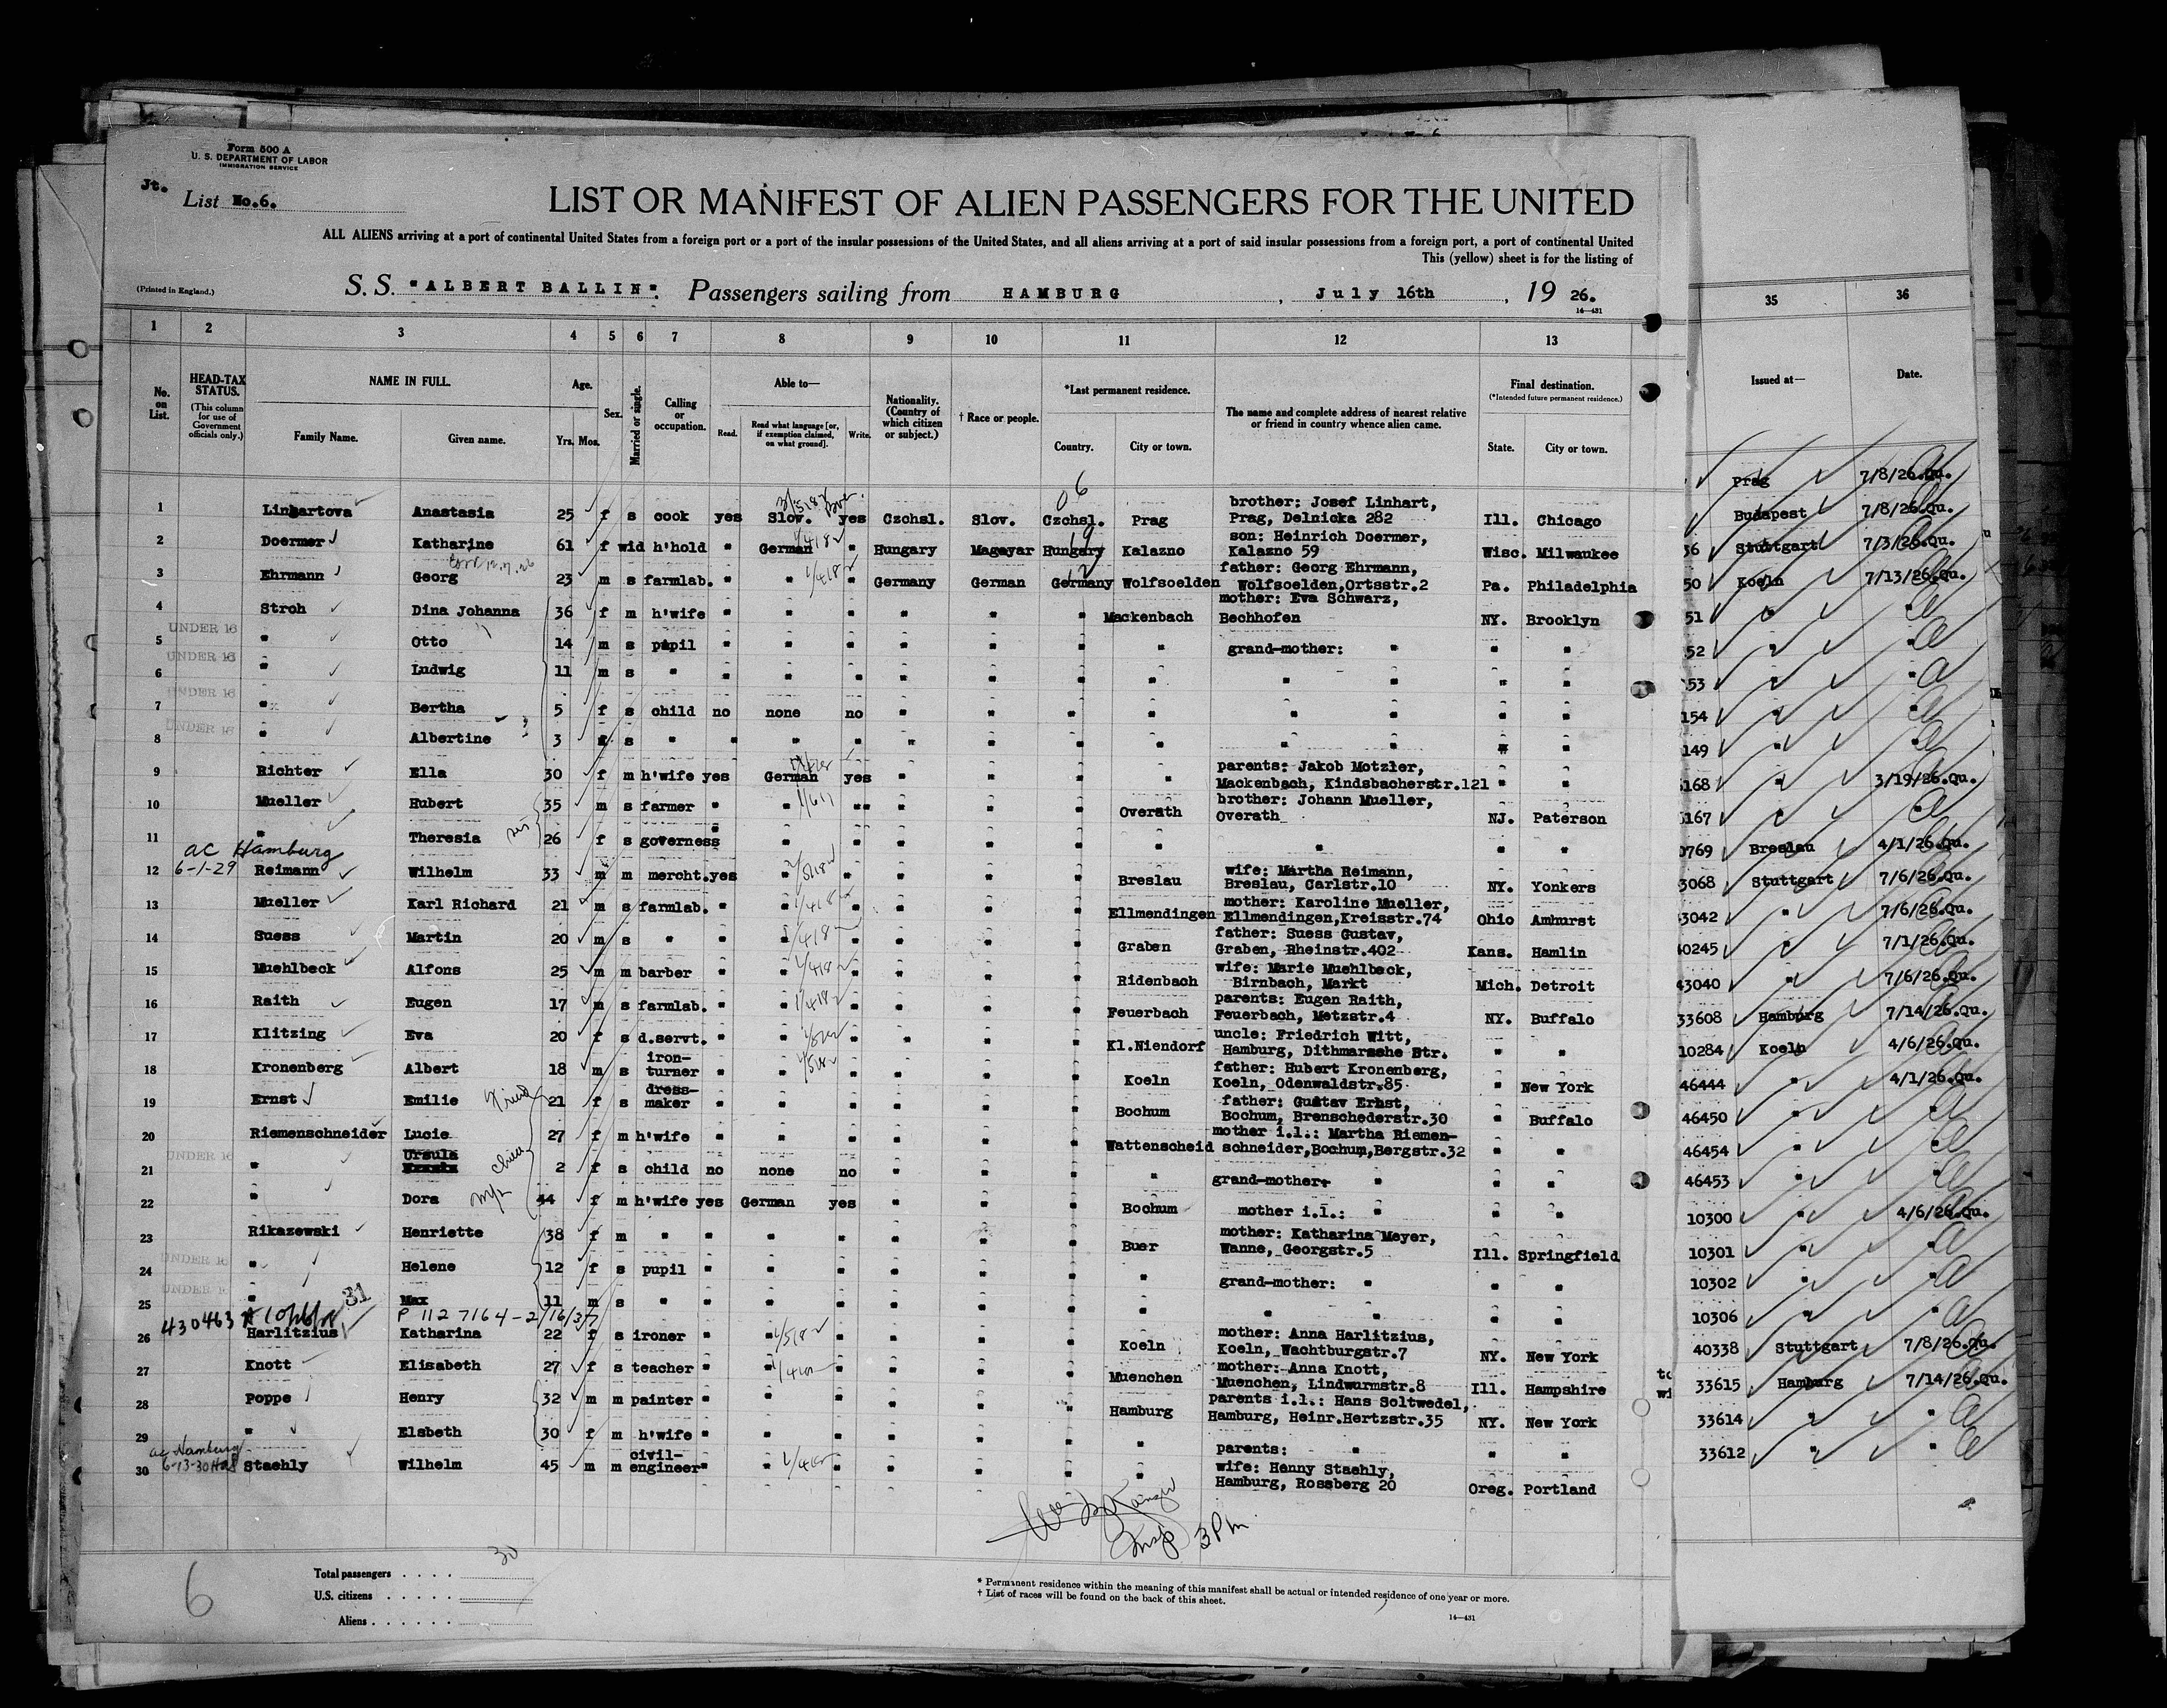 Form 500 A
U. S. DEPARTMENT OF LABOR
IMMIGRATION SERVICE
Jt.
List No.6.
LIST OR MANIFEST OF ALIEN PASSENGERS FOR THE UNITED
ALL ALIENS arriving at a port of continental United States from a foreign port or a port of the insular possessions of the United States, and all aliens arriving at a port of said insular possessions from a foreign port, a port of continental United
This (yellow) sheet is for the listing of
(Printed in England.)
S. S. "ALBERT BALLIN". Passengers sailing from HAMBURG, July 16th, 19 26.
14—431
1 2 3 4 5 6 7 8 9 10 11 12 13 35 36
No. on List.
HEAD-TAX STATUS. (This column for use of Government officials only.)
NAME IN FULL. Family Name. Given name.
Age. Yrs. Mos.
Sex.
Married or single.
Calling or occupation.
Able to— Read. Read what language [or, if exemption claimed, on what ground]. Write.
Nationality. (Country of which citizen or subject.)
† Race or people.
*Last permanent residence. Country. City or town.
The name and complete address of nearest relative or friend in country whence alien came.
Final destination. (*Intended future permanent residence.) State. City or town.
Issued at— Date.
1 Linhartova Anastasia 25 f s cook yes Slov. yes Czchsl. Slov. Czchsl. Prag brother: Josef Linhart, Prag, Delnicka 282 Ill. Chicago
2 Doermer Katharine 61 f wid h'hold " German " Hungary Magayar Hungary Kalazno son: Heinrich Doermer, Kalazno 59 Wisc. Milwaukee
3 Ehrmann Georg 23 m s farmlab. " " Germany German Germany Wolfsoelden father: Georg Ehrmann, Wolfsoelden,Ortsstr.2 Pa. Philadelphia
4 Stroh Dina Johanna 36 f m h'wife " " " " " " Mackenbach mother: Eva Schwarz, Bechhofen NY. Brooklyn
UNDER 16
5 " Otto 14 m s pupil " " " " " " " grand-mother: " " "
UNDER 16
6 " Ludwig 11 m s " " " " " " " " " " " "
UNDER 16
7 " Bertha 5 f s child no none no " " " " " " " "
UNDER 16
8 " Albertine 3 f s " " " " " " " " " " " "
9 Richter Ella 30 f m h'wife yes German yes " " " " parents: Jakob Motzler, Mackenbach, Kindsbacherstr.121 " "
10 Mueller Hubert 35 m s farmer " " " " " " Overath brother: Johann Mueller, Overath NJ. Paterson
11 " Theresia 26 f s governess " " " " " " " " " "
ac Hamburg
6-1-29
12 Reimann Wilhelm 33 m m mercht. yes " " " " " Breslau wife: Martha Reimann, Breslau, Carlstr.10 NY. Yonkers
13 Mueller Karl Richard 21 m s farmlab. " " " " " " Ellmendingen mother: Karoline Mueller, Ellmendingen,Kreisstr.74 Ohio Amhurst
14 Suess Martin 20 m s " " " " " " " Graben father: Suess Gustav, Graben, Rheinstr.402 Kans. Hamlin
15 Muehlbeck Alfons 25 m m barber " " " " " " Ridenbach wife: Marie Muehlbeck, Birnbach, Markt Mich. Detroit
16 Raith Eugen 17 m s farmlab. " " " " " " Feuerbach parents: Eugen Raith, Feuerbach, Metzstr.4 NY. Buffalo
17 Klitzing Eva 20 f s d.servt. " " " " " " Kl.Niendorf uncle: Friedrich Witt, Hamburg, Dithmarsche Str. " "
18 Kronenberg Albert 18 m s iron-turner " " " " " " Koeln father: Hubert Kronenberg, Koeln, Odenwaldstr.85 " New York
19 Ernst Emilie 21 f s dress-maker " " " " " " Bochum father: Gustav Ernst, Bochum, Brenschederstr.30 " Buffalo
20 Riemenschneider Lucie 27 f m h'wife " " " " " " Wattenscheid mother i.l.: Martha Riemen-schneider,Bochum,Bergstr.32 " "
UNDER 16
21 " Ursula 2 f s child no none no " " " " grand-mother: " " "
22 " Dora 44 f m h'wife yes German yes " " " Bochum mother i.l.: " " "
23 Rikazewski Henriette 38 f m " " " " " " " Buer mother: Katharina Meyer, Wanne, Georgstr.5 Ill. Springfield
UNDER 16
24 " Helene 12 f s pupil " " " " " " " grand-mother: " " "
UNDER 16
25 " Max 11 m s " " " " " " " " " " " "
430463 31 P 112 7164-2/16/37
26 Harlitzius Katharina 22 f s ironer " " " " " " Koeln mother: Anna Harlitzius, Koeln, Wachtburgstr.7 NY. New York
27 Knott Elisabeth 27 f s teacher " " " " " " Muenchen mother: Anna Knott, Muenchen, Lindwurmstr.8 Ill. Hampshire
28 Poppe Henry 32 m m painter " " " " " " Hamburg parents i.l.: Hans Soltwedel, Hamburg, Heinr.Hertzstr.35 NY. New York
29 " Elsbeth 30 f m h'wife " " " " " " " parents: " " "
ac Hamburg
6-13-30
30 Staehly Wilhelm 45 m m civil-engineer " " " " " " " wife: Henny Staehly, Hamburg, Rossberg 20 Oreg. Portland
Insp 3 Pm
Prag 7/8/26.Qu.
Budapest 7/8/26.Qu.
36 Stuttgart 7/3/26.Qu.
50 Koeln 7/13/26.Qu.
51 " "
52 " "
53 " "
154 " "
149 " "
168 " 3/19/26.Qu.
167 " "
0769 Breslau 4/1/26.Qu.
3068 Stuttgart 7/6/26.Qu.
3042 " 7/6/26.Qu.
40245 " 7/1/26.Qu.
43040 " 7/6/26.Qu.
33608 Hamburg 7/14/26.Qu.
10284 Koeln 4/6/26.Qu.
46444 " 4/1/26.Qu.
46450 " "
46454 " "
46453 " "
10300 " 4/6/26.Qu.
10301 " "
10302 " "
10306 " "
40338 Stuttgart 7/8/26.Qu.
33615 Hamburg 7/14/26.Qu.
33614 " "
33612 " "
6
Total passengers . . . . 30
U.S. citizens . . . . .
Aliens . . . . . .
* Permanent residence within the meaning of this manifest shall be actual or intended residence of one year or more.
† List of races will be found on the back of this sheet.
14—431